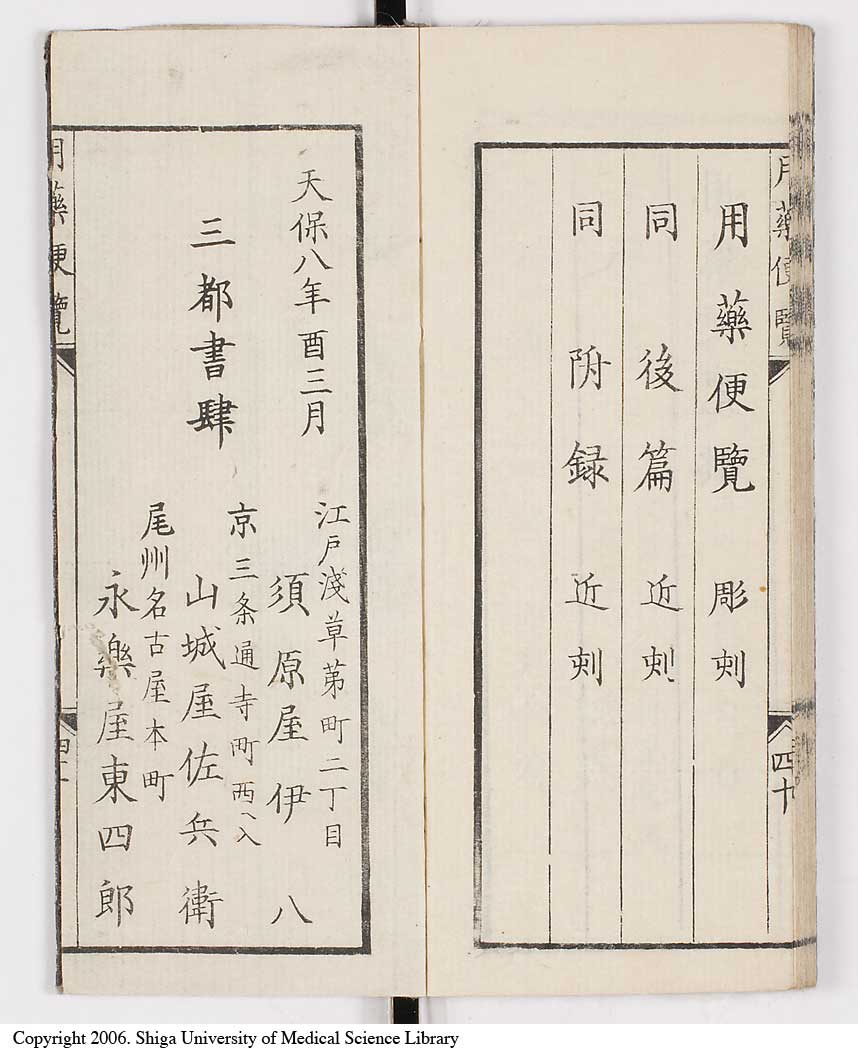 用藥便覽
四十
用藥便覽 彫刻
同 後篇 近刻
同 附録 近刻
天保八年酉三月
三都書肆
江戸淺草茅町二丁目
須原屋伊八
京三条通寺町西へ入
山城屋佐兵衛
尾州名古屋本町
永樂屋東四郎
用藥便覽
Copyright 2006. Shiga University of Medical Science Library